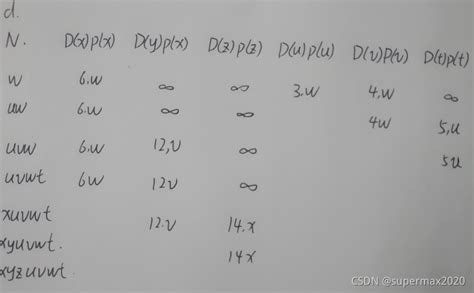 d.
N. D(x)p(x) D(y)p(x) D(z)p(z) D(u)p(u) D(v)p(v) D(t)p(t)
w 6.w ∞ ∞ 3.w 4.w ∞
uw 6.w ∞ ∞ 4w 5,u
uvw 6.w 12,v ∞ 5u
uvwt 6w 12v ∞
xuvwt 12.v 14.x
xyuvwt. 14x
xyzuvwt.
CSDN @supermax2020